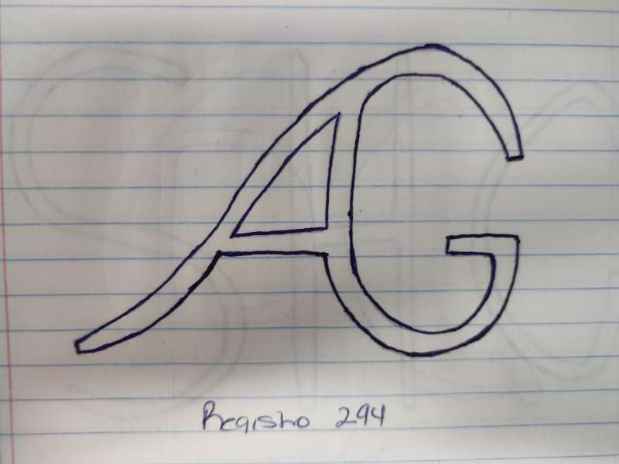 AG
Registro 294